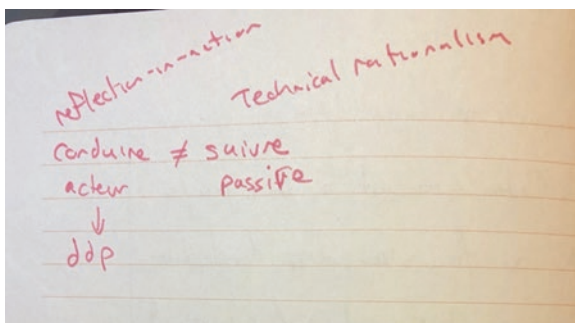 reflection-in-action Technical rationalism
conduire ≠ suivre
acteur passive
↓
ddp